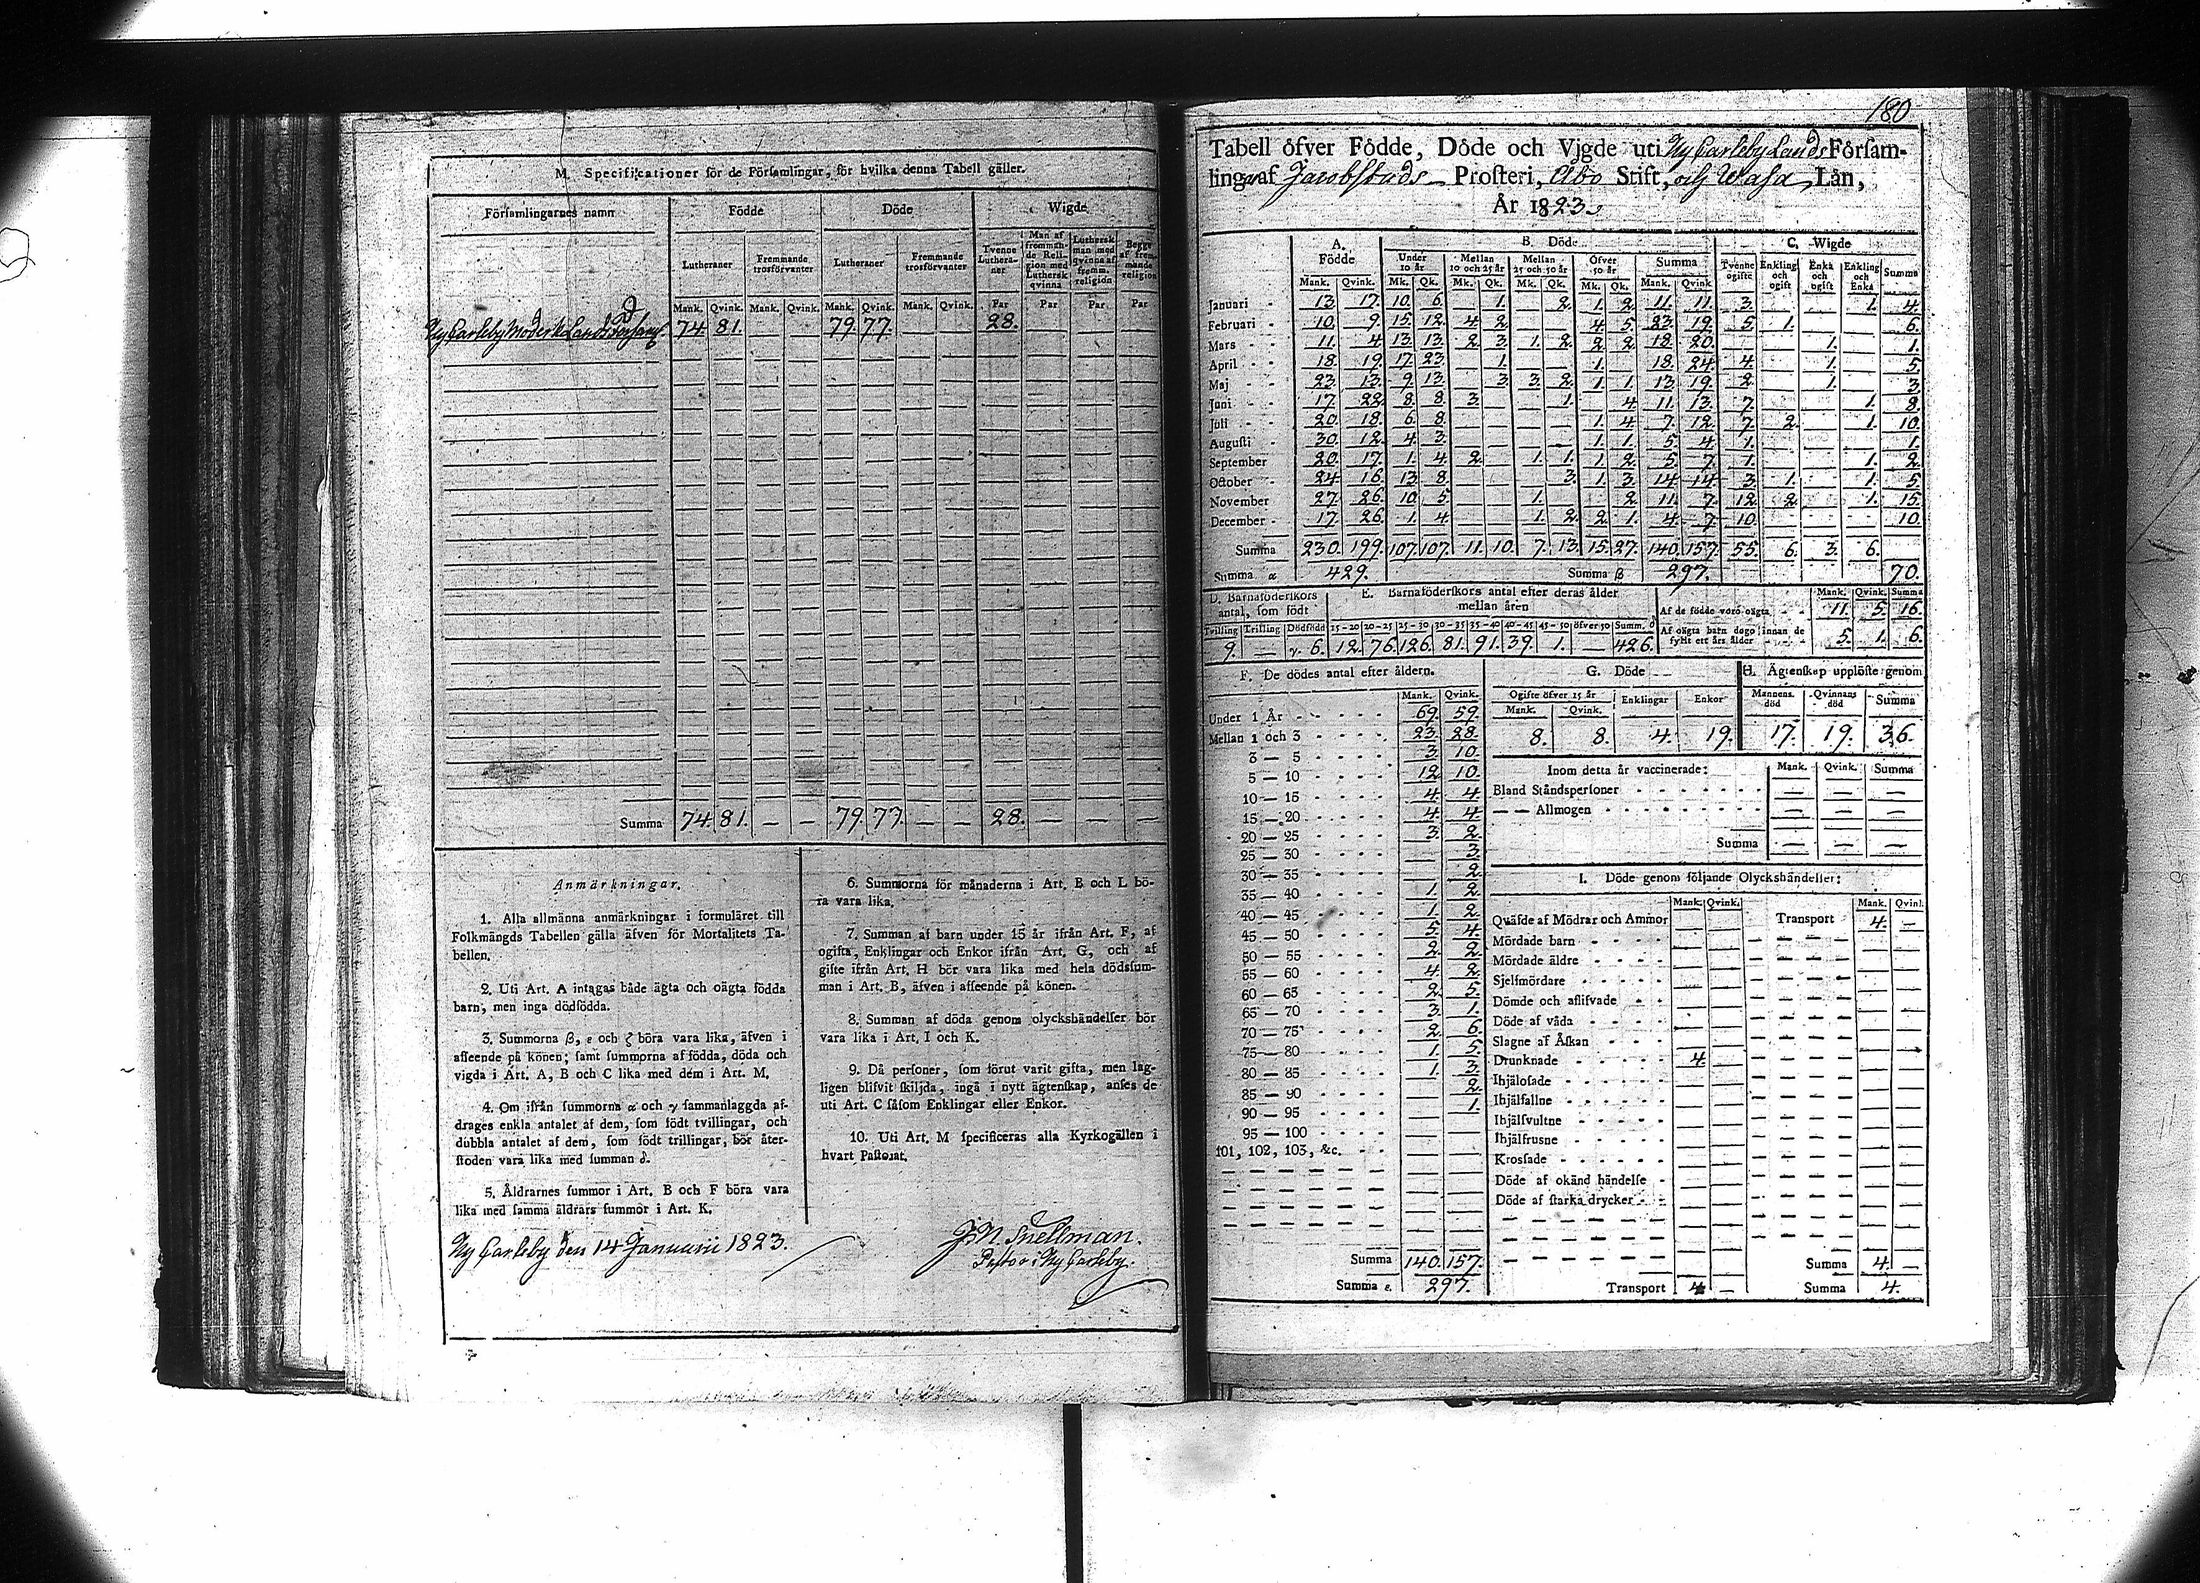 M. Specificationer för de Församlingar, för hvilka denna Tabell gäller.
Församlingarnes namn Födde Döde Wigde
Lutheraner Fremmande trosförvanter Lutheraner Fremmande trosförvanter Tvenne Lutheraner Man af fremmande Religion med Luthersk qvinna Luthersk man med qvinna af fremm. religion Begge af fremmande religion
Mank. Qvink. Mank. Qvink. Mank. Qvink. Mank. Qvink. Par Par Par Par
Ny Carleby Moderk. Lands Församl. 74 81. — — 79. 77. — — 28. — — —
Summa 74. 81. — — 79. 77. — — 28. — — —
Anmärkningar.
1. Alla allmänna anmärkningar i formuläret till
Folkmängds Tabellen gälla äfven för Mortalitets Ta-
bellen.
2. Uti Art. A intagas både ägta och oägta födda
barn, men inga dödfödda.
3. Summorna β, ε och ζ böra vara lika, äfven i
afseende på könen; samt summorna af födda, döda och
vigda i Art. A, B och C lika med dem i Art. M.
4. Om ifrån summorna α och γ sammanlaggda af-
drages enkla antalet af dem, som födt tvillingar, och
dubbla antalet af dem, som födt trillingar, bör åter-
stoden vara lika med summan δ.
5. Åldrarnes summor i Art. B och F böra vara
lika med samma äldrars summor i Art. K.
6. Summorna för månaderna i Art. B och L bö-
ra vara lika.
7. Summan af barn under 15 år ifrån Art. F, af
ogifta, Enklingar och Enkor ifrån Art. G, och af
gifte ifrån Art. H bör vara lika med hela dödssum-
man i Art. B, äfven i afseende på könen.
8. Summan af döda genom olyckshändelser bör
vara lika i Art. I och K.
9. Då personer, som förut varit gifta, men lag-
ligen blifvit skiljda, ingå i nytt ägtenskap, anses de
uti Art. C såsom Enklingar eller Enkor.
10. Uti Art. M specificeras alla Kyrkogällen i
hvart Pastorat.
Ny Carleby den 14 Januarii 1823.
J. N. Snellman.
Pastor i Ny Carleby.
180
Tabell öfver Födde, Döde och Vigde uti Ny Carleby Lands Församlingar
af Jacobstads Prosteri, Åbo Stift, och Wasa Län,
År 1823.
A. Födde B. Döde C. Wigde
Under 10 år Mellan 10 och 25 år Mellan 25 och 50 år Öfver 50 år Summa Tvenne ogifte Enkling och ogift Enka och ogift Enkling och Enka Summa
Mank. Qvink. Mk. Qk. Mk. Qk. Mk. Qk. Mk. Qk. Mank. Qvink
Januari 13. 17. 10. 6. 1. 2. 1. 2. 11. 11. 3. 1. 4.
Februari 10. 9. 15. 12. 4. 2. 4. 5. 23. 19. 5. 1. 6.
Mars 11. 4. 13. 13. 2. 3. 1. 2. 2. 2. 18. 20. 1. 1.
April 18. 19. 17. 23. 1. 1. 18. 24. 4. 1. 5.
Maj 23. 13. 9. 13. 3. 3. 2. 1. 1. 13. 19. 2. 1. 3.
Juni 17. 22. 8. 8. 3. 1. 4. 11. 13. 7. 1. 8.
Juli 20. 18. 6. 8. 1. 4. 7. 12. 7. 2. 1. 10.
Augusti 30. 12. 4. 3. 1. 1. 5. 4. 1. 1.
September 20. 17. 1. 4. 2. 1. 1. 1. 2. 5. 7. 1. 1. 2.
October 24. 16. 13. 8. 3. 1. 3. 14. 14. 3. 1. 1. 5.
November 27. 26. 10. 5. 1. 2. 11. 7. 12. 2. 1. 15.
December 17. 26. 1. 4. 1. 2. 2. 1. 4. 7. 10. 10.
Summa 230. 199. 107. 107. 11. 10. 7. 13. 15. 27. 140. 157. 55. 6. 3. 6.
Summa α 429. Summa β 297. 70.
D. Barnaföderskors antal, som födt
E. Barnaföderskors antal efter deras ålder mellan åren
Mank. Qvink. Summa
Af de födde voro oägta 11. 5. 16.
Tvilling Trilling Dödfödd 15–20 20–25 25–30 30–35 35–40 40–45 45–50 öfver 50 Summ. δ
9. — γ. 6. 12. 76. 126. 81. 91. 39. 1. — 426.
Af oägta barn dogo innan de fyllt ett års ålder 5. 1. 6.
F. De dödes antal efter åldern.
Mank. Qvink.
Under 1 År 69. 59.
Mellan 1 och 3 23. 28.
3 — 5 3. 10.
5 — 10 12. 10.
10 — 15 4. 4.
15 — 20 4. 4.
20 — 25 3. 2.
25 — 30 3.
30 — 35 2.
35 — 40 1. 2.
40 — 45 1. 2.
45 — 50 5. 4.
50 — 55 2. 2.
55 — 60 4. 2.
60 — 65 2. 5.
65 — 70 3. 1.
70 — 75 2. 6.
75 — 80 1. 5.
80 — 85 1. 3.
85 — 90 2.
90 — 95 1.
95 — 100
101, 102, 103, &c.
Summa 140. 157.
Summa ε. 297.
G. Döde
Ogifte öfver 15 år Enklingar Enkor
Mank. Qvink.
8. 8. 4. 19.
H. Ägtenskap upplöste genom
Mannens död Qvinnans död Summa
17. 19. 36.
Inom detta år vaccinerade: Mank. Qvink. Summa
Bland Ståndspersoner — — —
— — Allmogen — — —
Summa — — —
I. Döde genom följande Olyckshändelser:
Mank. Qvink. Mank. Qvink.
Quäfde af Mödrar och Ammor Transport 4. —
Mördade barn
Mördade äldre
Sjelfmördare
Dömde och aflifvade
Döde af våda
Slagne af Åskan
Drunknade 4.
Ihjälosade
Ihjälfallne
Ihjälsvultne
Ihjälfrusne
Krossade
Döde af okänd händelse
Döde af starka drycker
Summa 4. —
Transport 4 — Summa 4.